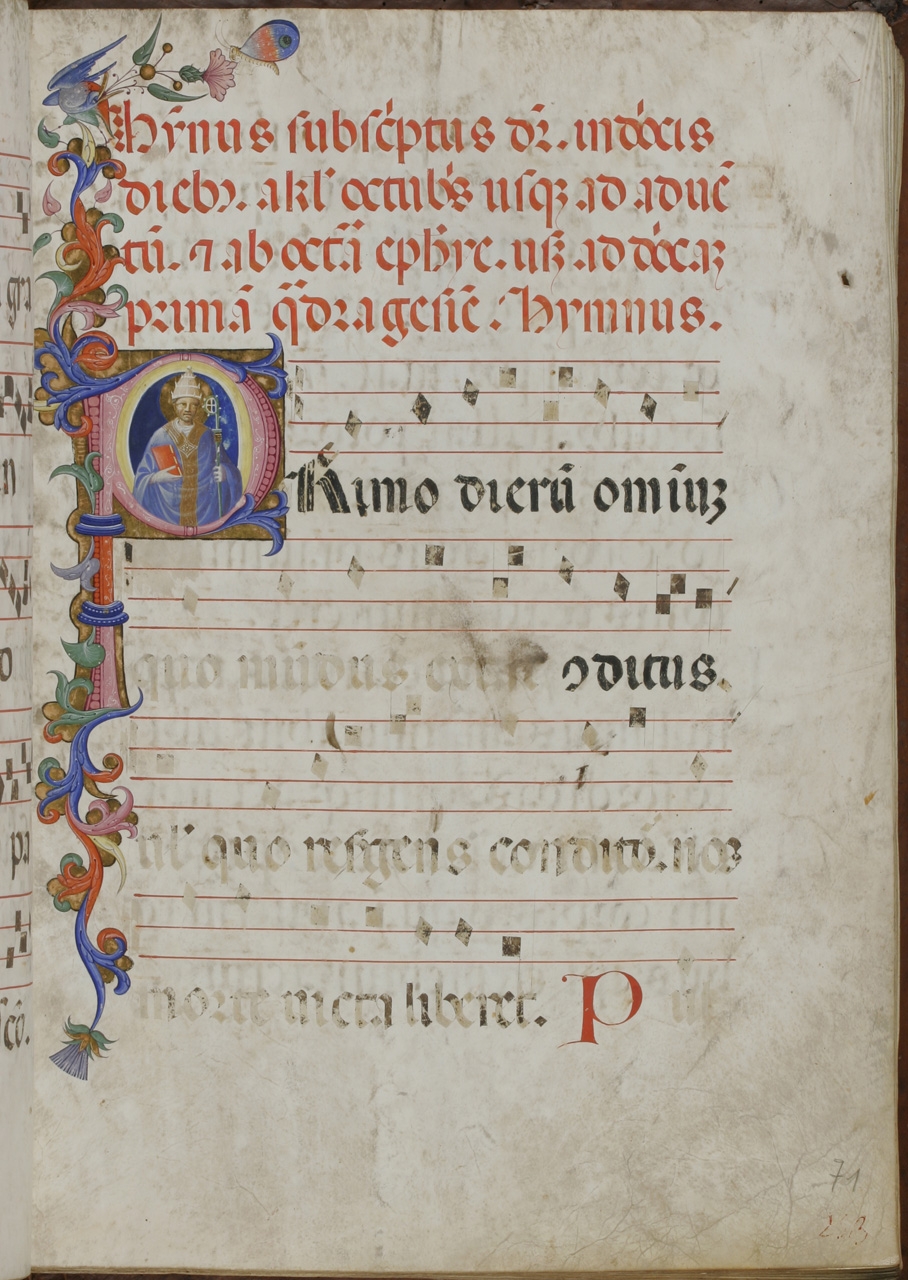 Hỹnus subsc̓ptus dr̃. in dóīcis
dieb⁊. a kl̓ octub̓s usqꝫ ad aduẽ
tũ. ⁊ ab octã ephỹe. usꝫ ad dóīcaꝫ
primã q̃dragesiẽ. Hymnus.
PRimo dierũ omĩuꝫ
quo mũdus extat ꝯditus.
ul̓ quo resurgens conditoꝛ. nos
morte uicta liberet. P uls
71